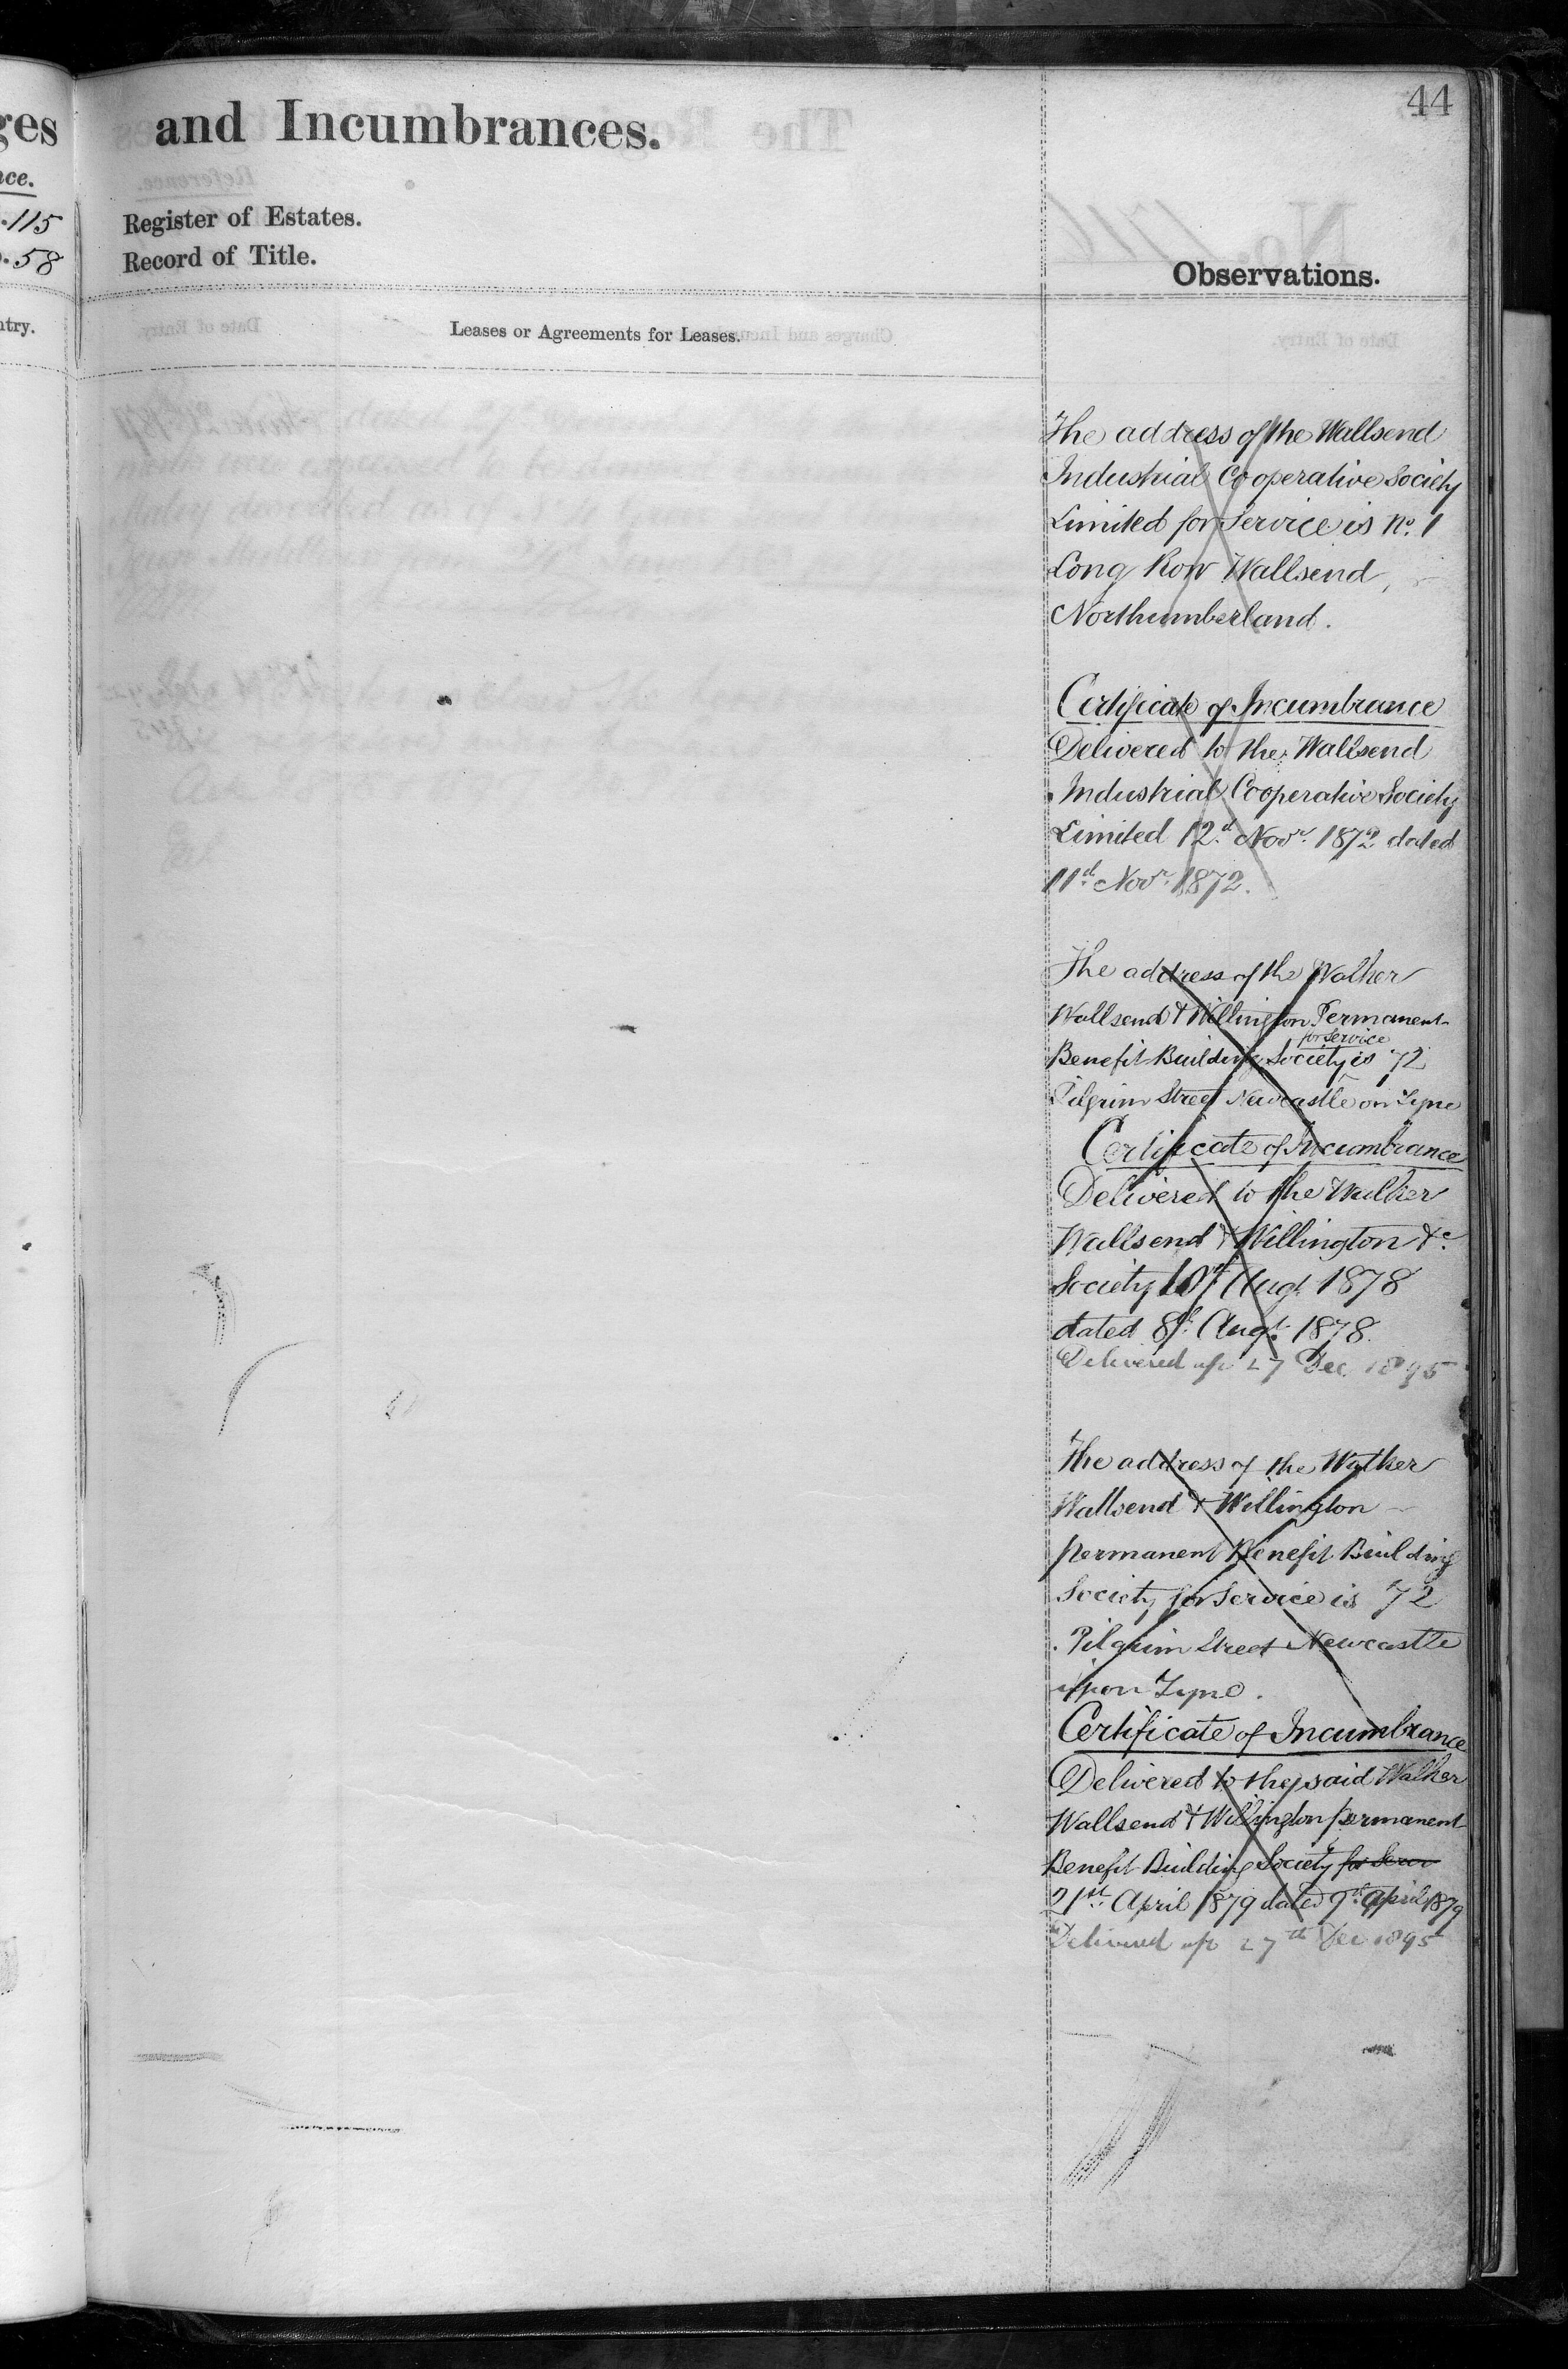 44
ges
and Incumbrances.
nce.
.115
Register of Estates.
.58
Record of Title.
Observations.
ntry.
Leases or Agreements for Leases.
The address of the Wallsend
Industrial Cooperative Society
Limited for Service is No. 1
Long Row Wallsend,
Northumberland.
Certificate of Incumbrance
Delivered to the Wallsend
Industrial Cooperative Society
Limited 12d. Novr. 1872 dated
11d. Novr. 1872.
The address of the Walker
Wallsend & Willington Permanent
for Service
Benefit Building Society is 72
Pilgrim Street Newcastle on Tyne
Certificate of Incumbrance
Delivered to the Walker
Wallsend & Willington &c.
Society 10th Augt 1878
dated 8th. Augt. 1878.
Delivered up 27 Dec. 1895
The address of the Walker
Wallsend & Willington
permanent Benefit Building
Society for Service is 72
Pilgrim Street Newcastle
upon Tyne.
Certificate of Incumbrance
Delivered to the said Walker
Wallsend & Willington permanent
Benefit Building Society for Servi
21st. April 1879 dated 9th. April 1879
Delivered up 27th Dec 1895